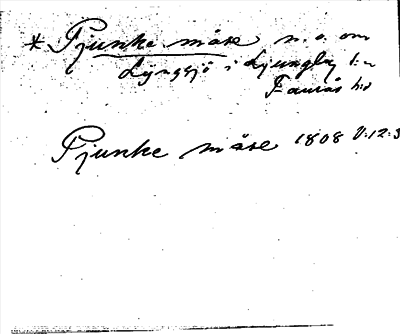 * Pjunke måse n. ö. om
Lyngsjö i Ljungby s:n
Faurås hd
Pjunke måse 1808 V:12:3